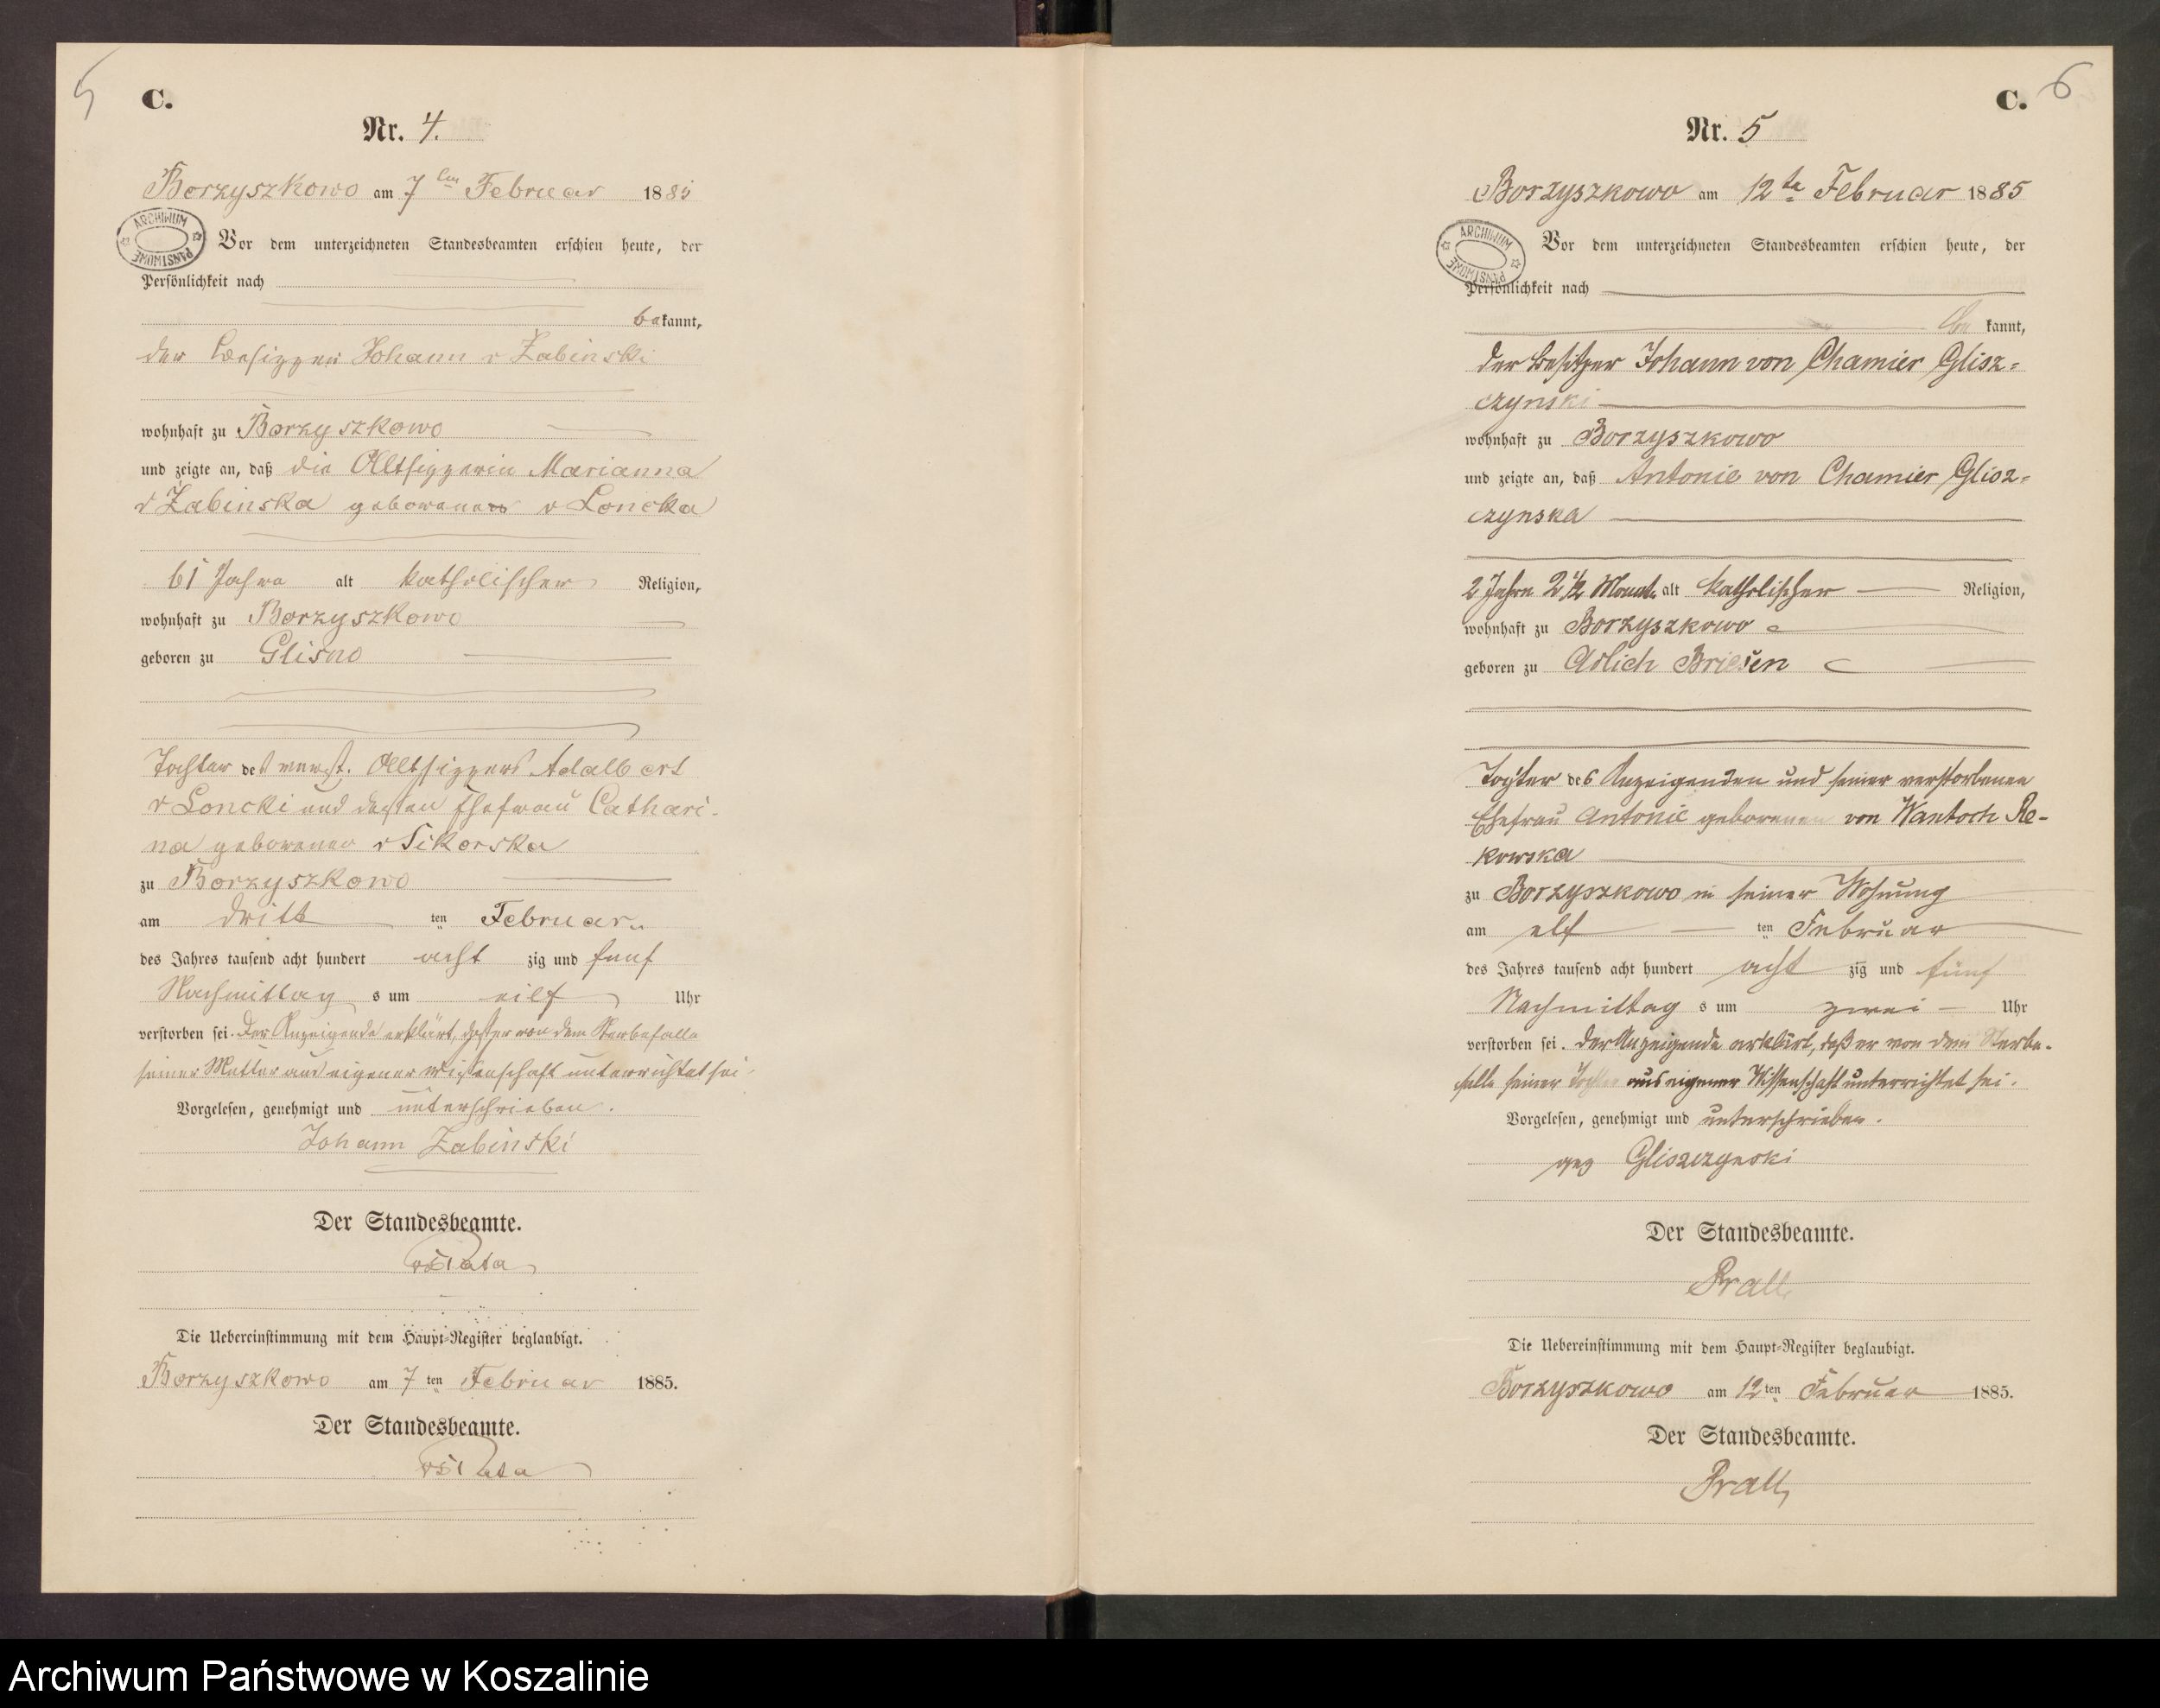 5
C.
Nr. 4.
Borzyszkowo am 7ten Februar 1885
ARCHIWUM PAŃSTWOWE
Vor dem unterzeichneten Standesbeamten erschien heute, der
Persönlichkeit nach
bekannt,
der Besitzer Johann v Zabinski
wohnhaft zu Borzyszkowo
und zeigte an, daß die Altsitzerin Marianna
v Zabinska geborene v Loncka
61 Jahre alt katholischer Religion,
wohnhaft zu Borzyszkowo
geboren zu Glisno
Tochter des verst. Altsitzers Adalbert
v Loncki und dessen Ehefrau Cathari-
na geborener v Sikorska
zu Borzyszkowo
am dritt ten Februar
des Jahres tausend acht hundert acht zig und fünf
Nachmittag s um eilf Uhr
verstorben sei. Der Anzeigende erklärt, daß er von dem Sterbefalle
seiner Mutter aus eigener Wissenschaft unterrichtet sei.
Vorgelesen, genehmigt und unterschrieben.
Johann Zabinski
Der Standesbeamte.
Die Uebereinstimmung mit dem Haupt-Register beglaubigt.
Borzyszkowo am 7ten Februar 1885.
Der Standesbeamte.
6
C.
Nr. 5
Borzyszkowo am 12te Februar 1885
ARCHIWUM PAŃSTWOWE
Vor dem unterzeichneten Standesbeamten erschien heute, der
Persönlichkeit nach
be kannt,
der Besitzer Johann von Chamier Glisz=
czynski
wohnhaft zu Borzyszkowo
und zeigte an, daß Antonie von Chamier Glisz=
czynska
2 Jahre 2 1/2 Monate alt katholischer Religion,
wohnhaft zu Borzyszkowo
geboren zu Adlich Briesen
Tochter des Anzeigenden und seiner verstorbenen
Ehefrau Antonie geborenen von Wantoch Re-
kowska
zu Borzyszkowo in seiner Wohnung
am elf ten Februar
des Jahres tausend acht hundert acht zig und fünf
Nachmittag s um zwei Uhr
verstorben sei. Der Anzeigende erklärt, daß er von dem Sterbe-
falle seiner Tochter aus eigener Wissenschaft unterrichtet sei.
Vorgelesen, genehmigt und unterschrieben.
gez Gliszczynski
Der Standesbeamte.
Prall
Die Uebereinstimmung mit dem Haupt-Register beglaubigt.
Borzyszkowo am 12ten Februar 1885.
Der Standesbeamte.
Prall
Archiwum Państwowe w Koszalinie